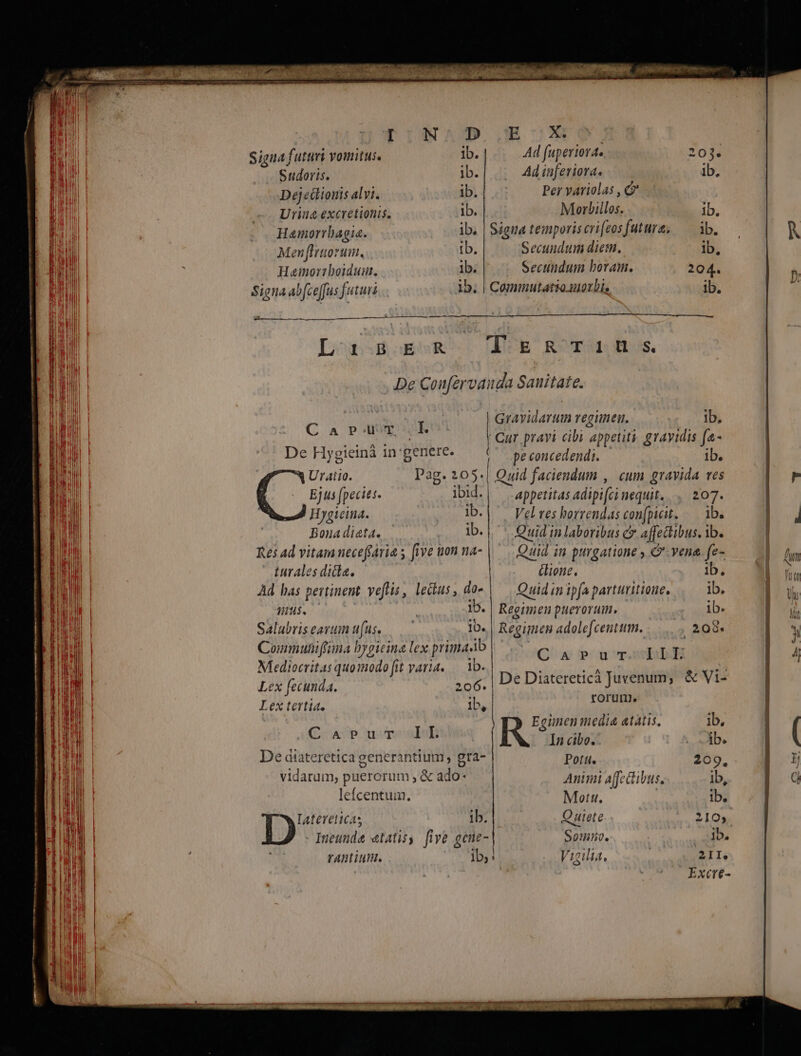 INDEX.
Signa futuri vomitus. ib.
Sudoris. ib.
Dejectionis alvi. ib.
Urinæ excretionis. ib.
Hæmorrhagiæ. ib.
Menſtruorum. ib.
Hæmorrhoidum. ib.
Signa abſceſſus futuri ib.
Ad ſuperiora. 203.
Ad inferiora. ib.
Per variolas, &
Morbillos. ib.
Signa temporis criſeos futuræ. ib.
Secundum diem. ib.
Secundum horam. 204.
Commutatio morbi. ib.
LIBER TERTIUS.
De Conſervanda Sanitate.
CAPUT I.
De Hygieinâ in genere.
CUratio. Pag. 205.
Ejus ſpecies. ibid.
Hygieina. ib.
Bona diæta. ib.
Res ad vitam neceſſariæ; ſive non na-
turales dictæ. ib.
Ad has pertinent veſtis, lectus, do-
mus. ib.
Salubris earum uſus. ib.
Communiſſima hygieinæ lex prima. ib
Mediocritas quomodo ſit varia. ib.
Lex ſecunda. 206.
Lex tertia. ib.
CAPUT II.
De diateretica generantium, gra-
vidarum, puerorum, & ado-
leſcentum.
DIateretica,
ib.
Ineundæ ætatis, ſive gene-
rantium. ib.
Gravidarum regimen. ib.
Cur pravi cibi appetiti gravidis ſæ-
pe concedendi. ib.
Quid faciendum, cum gravida res
appetitas adipiſci nequit. 207.
Vel res horrendas conſpicit. ib.
Quid in laboribus & affectibus. ib.
Quid in purgatione, & venæ ſe-
ctione. ib.
Quid in ipſa parturitione. ib.
Regimen puerorum. ib.
Regimen adoleſcentum. 208.
CAPUT III.
De Diatereticâ Juvenum, & Vi-
rorum.
REgimen mediæ ætatis. ib.
In cibo. ib.
Potu. 209.
Animi affectibus. ib.
Motu. ib.
Quiete. 210.
Somno. ib.
Vigilia. 211.
Excre-